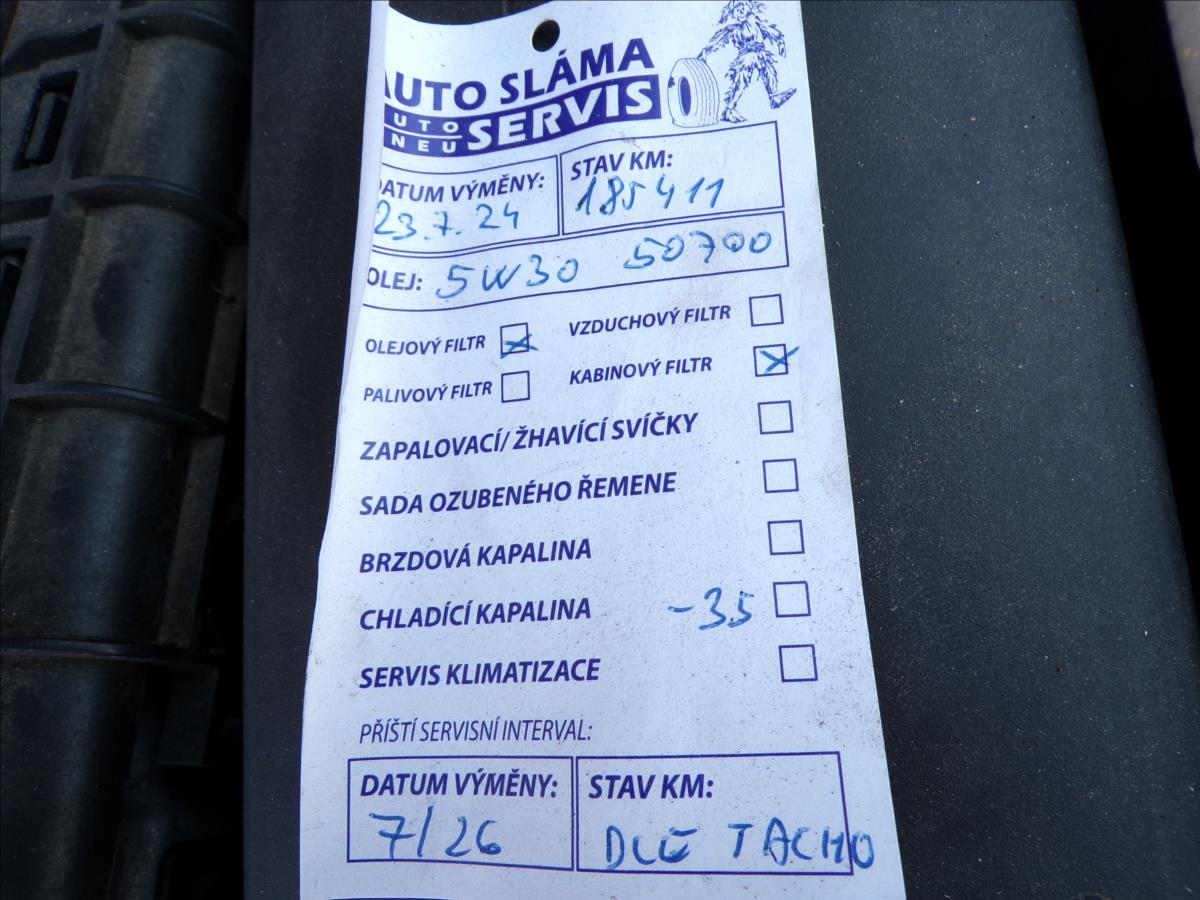 AUTO SLÁMA
AUTO
PNEU SERVIS
DATUM VÝMĚNY: STAV KM:
23.7.24 185411
OLEJ: 5W30 50700
OLEJOVÝ FILTR VZDUCHOVÝ FILTR
PALIVOVÝ FILTR KABINOVÝ FILTR
ZAPALOVACÍ/ ŽHAVÍCÍ SVÍČKY
SADA OZUBENÉHO ŘEMENE
BRZDOVÁ KAPALINA
CHLADÍCÍ KAPALINA -35
SERVIS KLIMATIZACE
PŘÍŠTÍ SERVISNÍ INTERVAL:
DATUM VÝMĚNY: STAV KM:
7/26 DLE TACHO